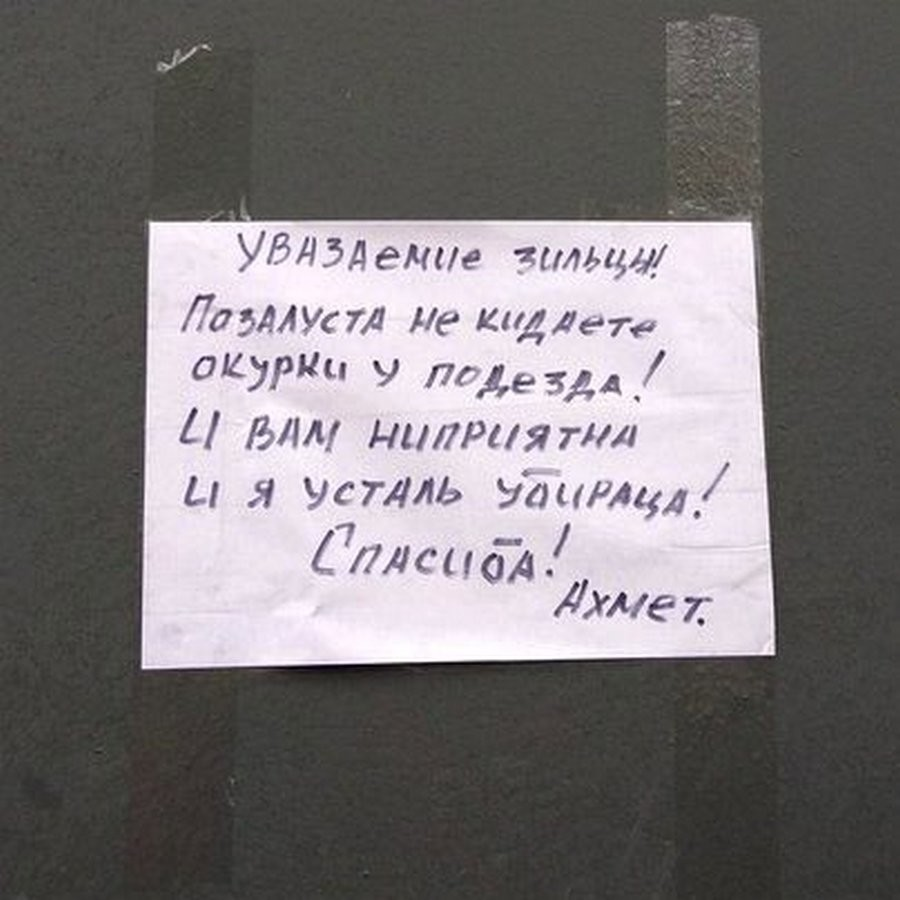 УВАЗАемие зильцы!
ПоЗАЛУСТА Не кидАете
окурки у подезда!
И ВАМ НИПРИЯТНА
И Я УСТАЛЬ УбИРАЦА!
СПАСИбА!
Ахмет.